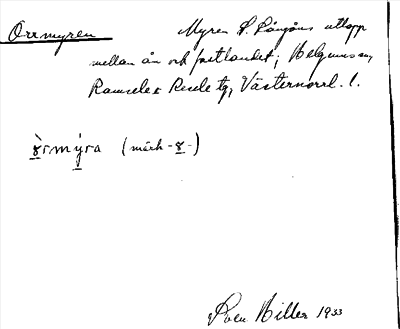 Orrmyren
Myren S. Långåns utlopp
mellan ån och fastlandet; Helgums sn,
Ramsele o Resele tg, Västernorrl. l.
ɤ̀rmýra (märk -ɤ-)
Sven Hiller 1933